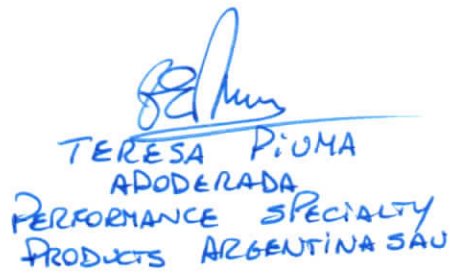 TERESA PiUMA
APODERADA
PERFORMANCE SPECIALTY
PRODUCTS ARGENTINA SAU